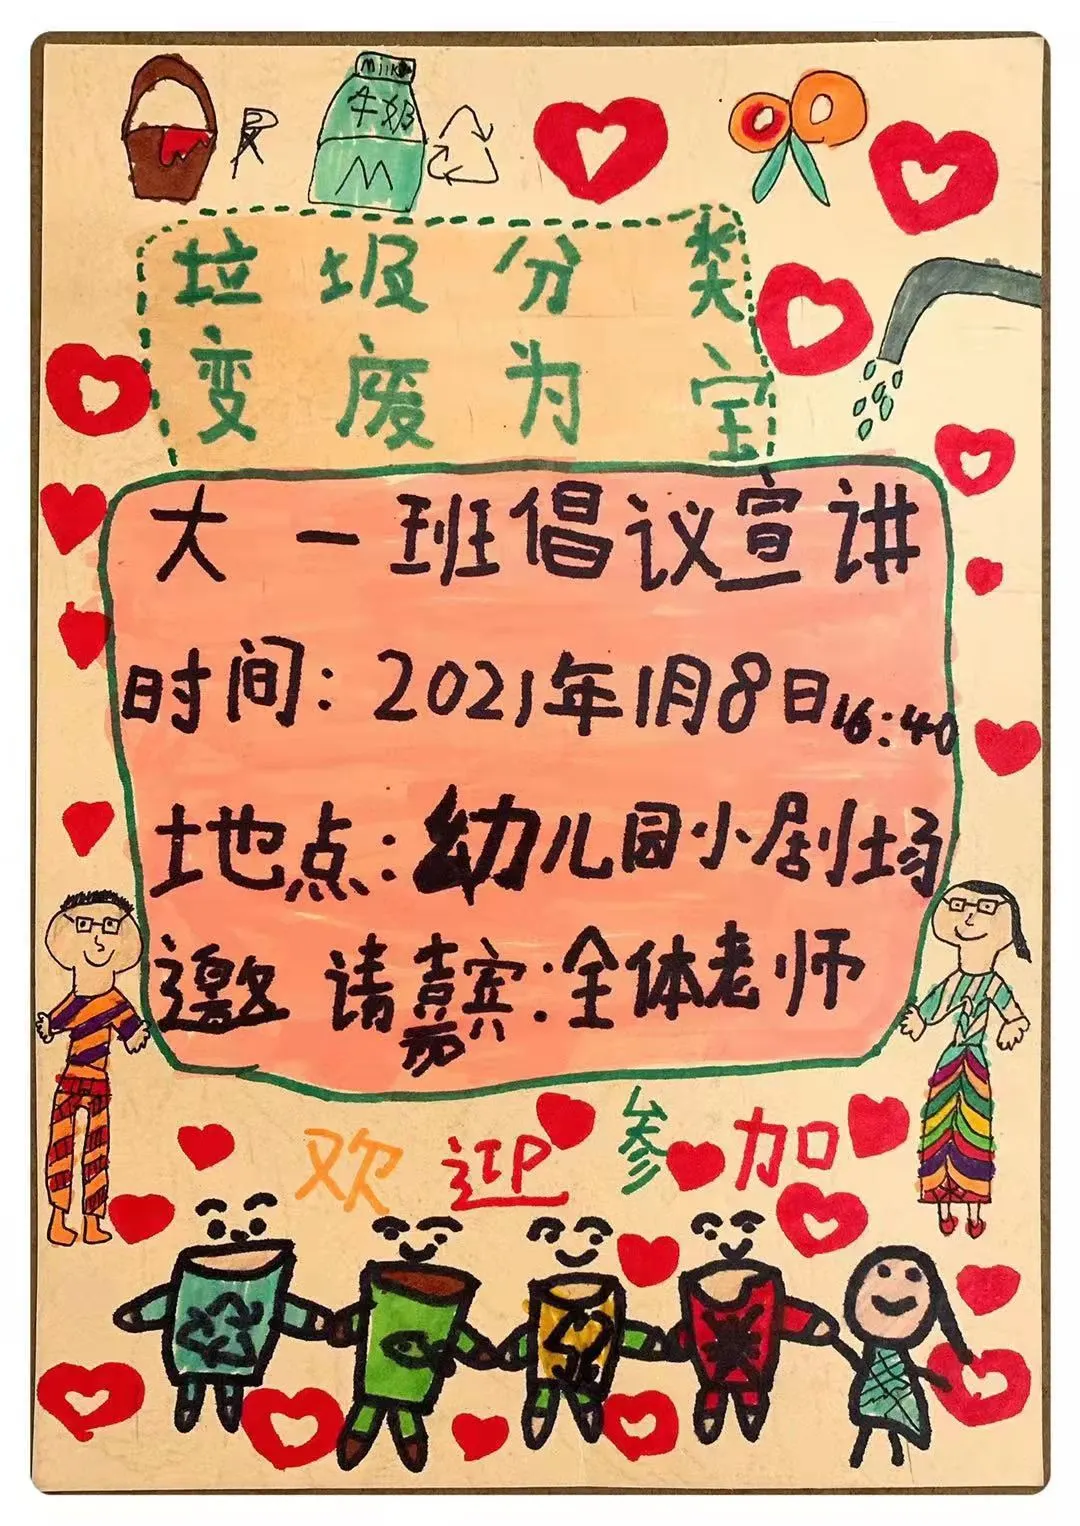 Milk
牛奶
M
垃圾分类
变废为宝
大一班倡议宣讲
时间：2021年1月8日16:40
地点：幼儿园小剧场
邀请嘉宾：全体老师
欢迎参加